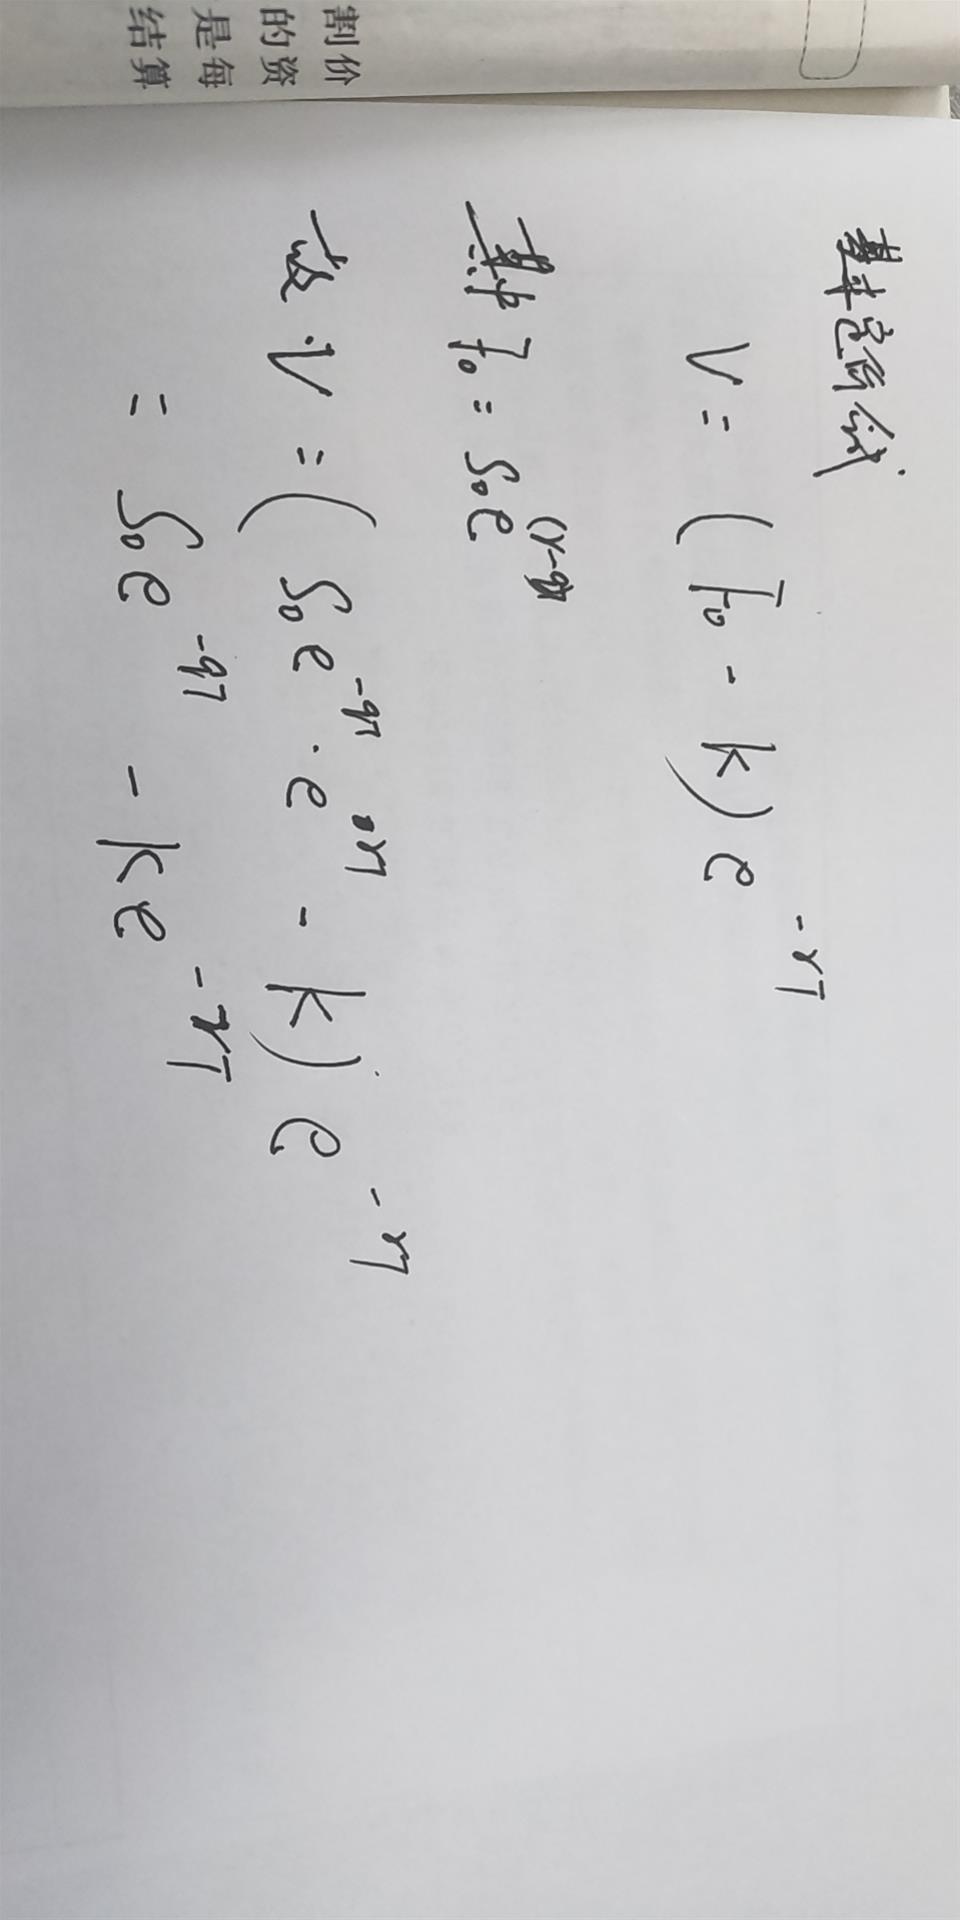 割价
的资
是每
结算
V = (F₀ - k) e^{-rT}
其中 F₀ = S₀e^{(r-q)}
故 V = (S₀e^{-qT} · e^{rT} - k) e^{-rT}
= S₀e^{-qT} - ke^{-rT}